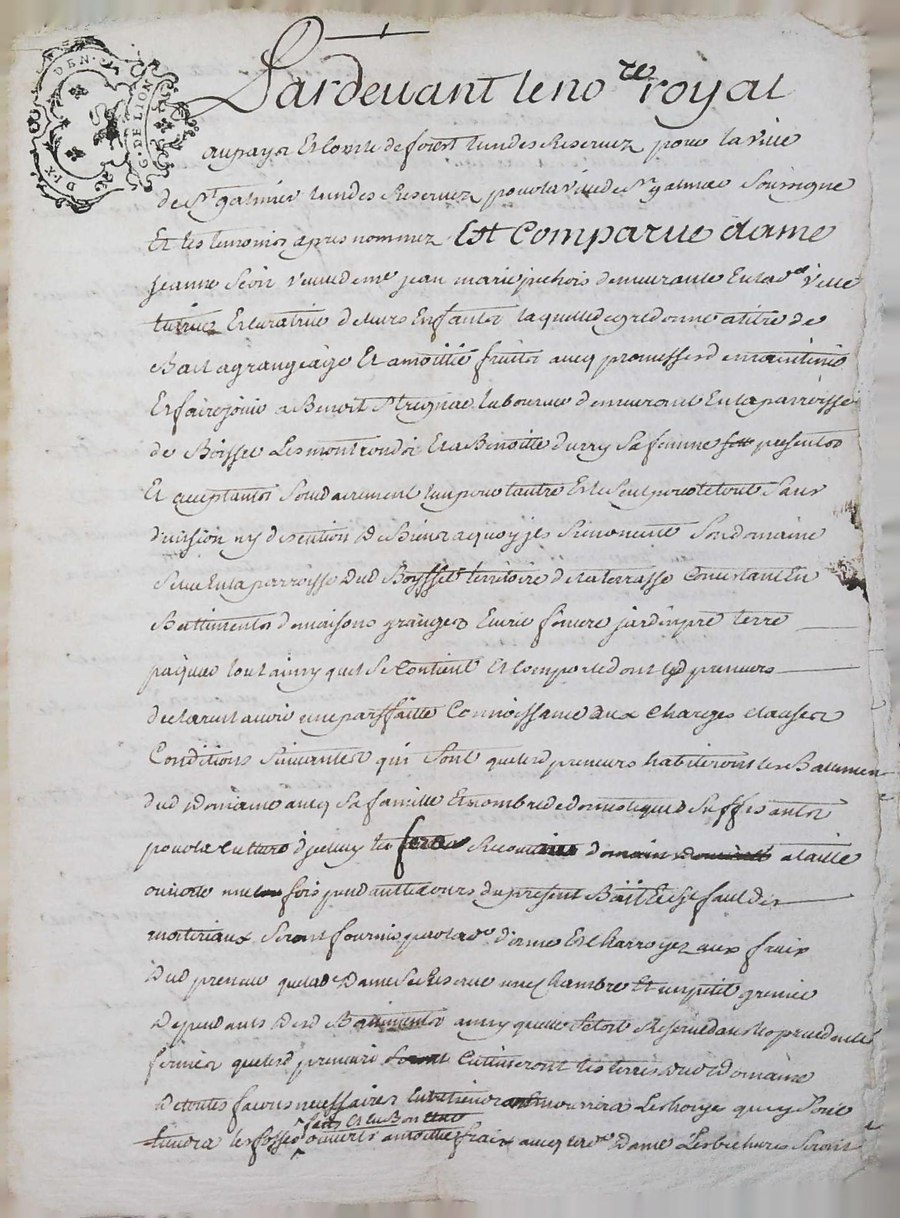 DIX DEN.
G. DE LION
Pardevant le no.re royal
au pays et Comté de forest lun des Reservez pour la ville
de St galmier lun des Reservez pour la ville de St galmier Soussigne
Et les temoins apres nommez Est Comparue dame
jeanne veuve de me jean marie demeurante En lad ville
tutrice Et curatrice de leurs Enfants laquelle de gre donne a titre de
Bail a grangeage Et a moitié fruits avec promesses de maintenir
Et faire jouir a Benoit laboureur demeurant En la parroisse
de Boisset Les montronds Et a Benoitte durry Sa femme presents
Et acceptants Solidairement lun pour lautre Et le Seul pour le tout Sans
division ny de Biens a quoy ils Renoncent Son domaine
Situé En la parroisse dud Boysset territoire de la terrasse Consistant En
Battiments de maisons granges Ecurie jardin pré terre
paquier tout ainsy quil Se Contient Et Comporte dont lesd preneurs
declarent avoir une parffaitte Connoissance aux Charges clauses Et
Conditions Suivantes qui Sont que lesd preneurs habiteront les Battimen
dud domaine avec Sa famille Et nombre de domestiques Suffisants
pour la Culture dyceluy les a taille
ouverte une fois pendant le cours du present Bail Et Sil faut des
materiaux Seront fournis par lad dame Et Charroyez aux fraix
dud preneur que lad Dame Se Reserve une Chambre Et un petit grenier
Dependants desd Battiments ainsy quelle Setoit Reservé au
fermier que lesd preneurs Cultiveront les terres dud domaine
de toutes façons necessaires
faits Et en Bon Etat
tiendra les fosses ouverts a moitié fraix avec lad Dame Seront